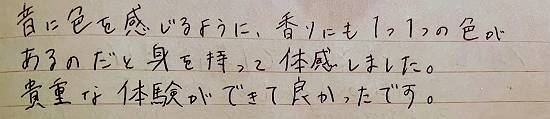 音に色を感じるように、香りにも1つ1つの色が
あるのだと身を持って体感しました。
貴重な体験ができて良かったです。